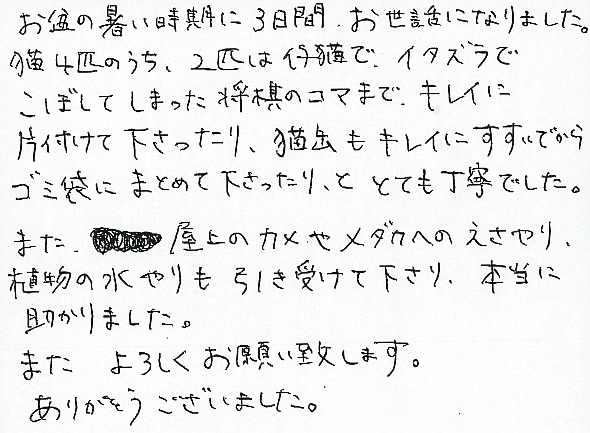 お盆の暑い時期に3日間、お世話になりました。
猫4匹のうち、2匹は仔猫で、イタズラで
こぼしてしまった将棋のコマまで、キレイに
片付けて下さったり、猫缶もキレイにすすいでから
ゴミ袋にまとめて下さったり、と とても丁寧でした。
また、屋上のカメやメダカへのえさやり、
植物の水やりも引き受けて下さり、本当に
助かりました。
また よろしくお願い致します。
ありがとうございました。